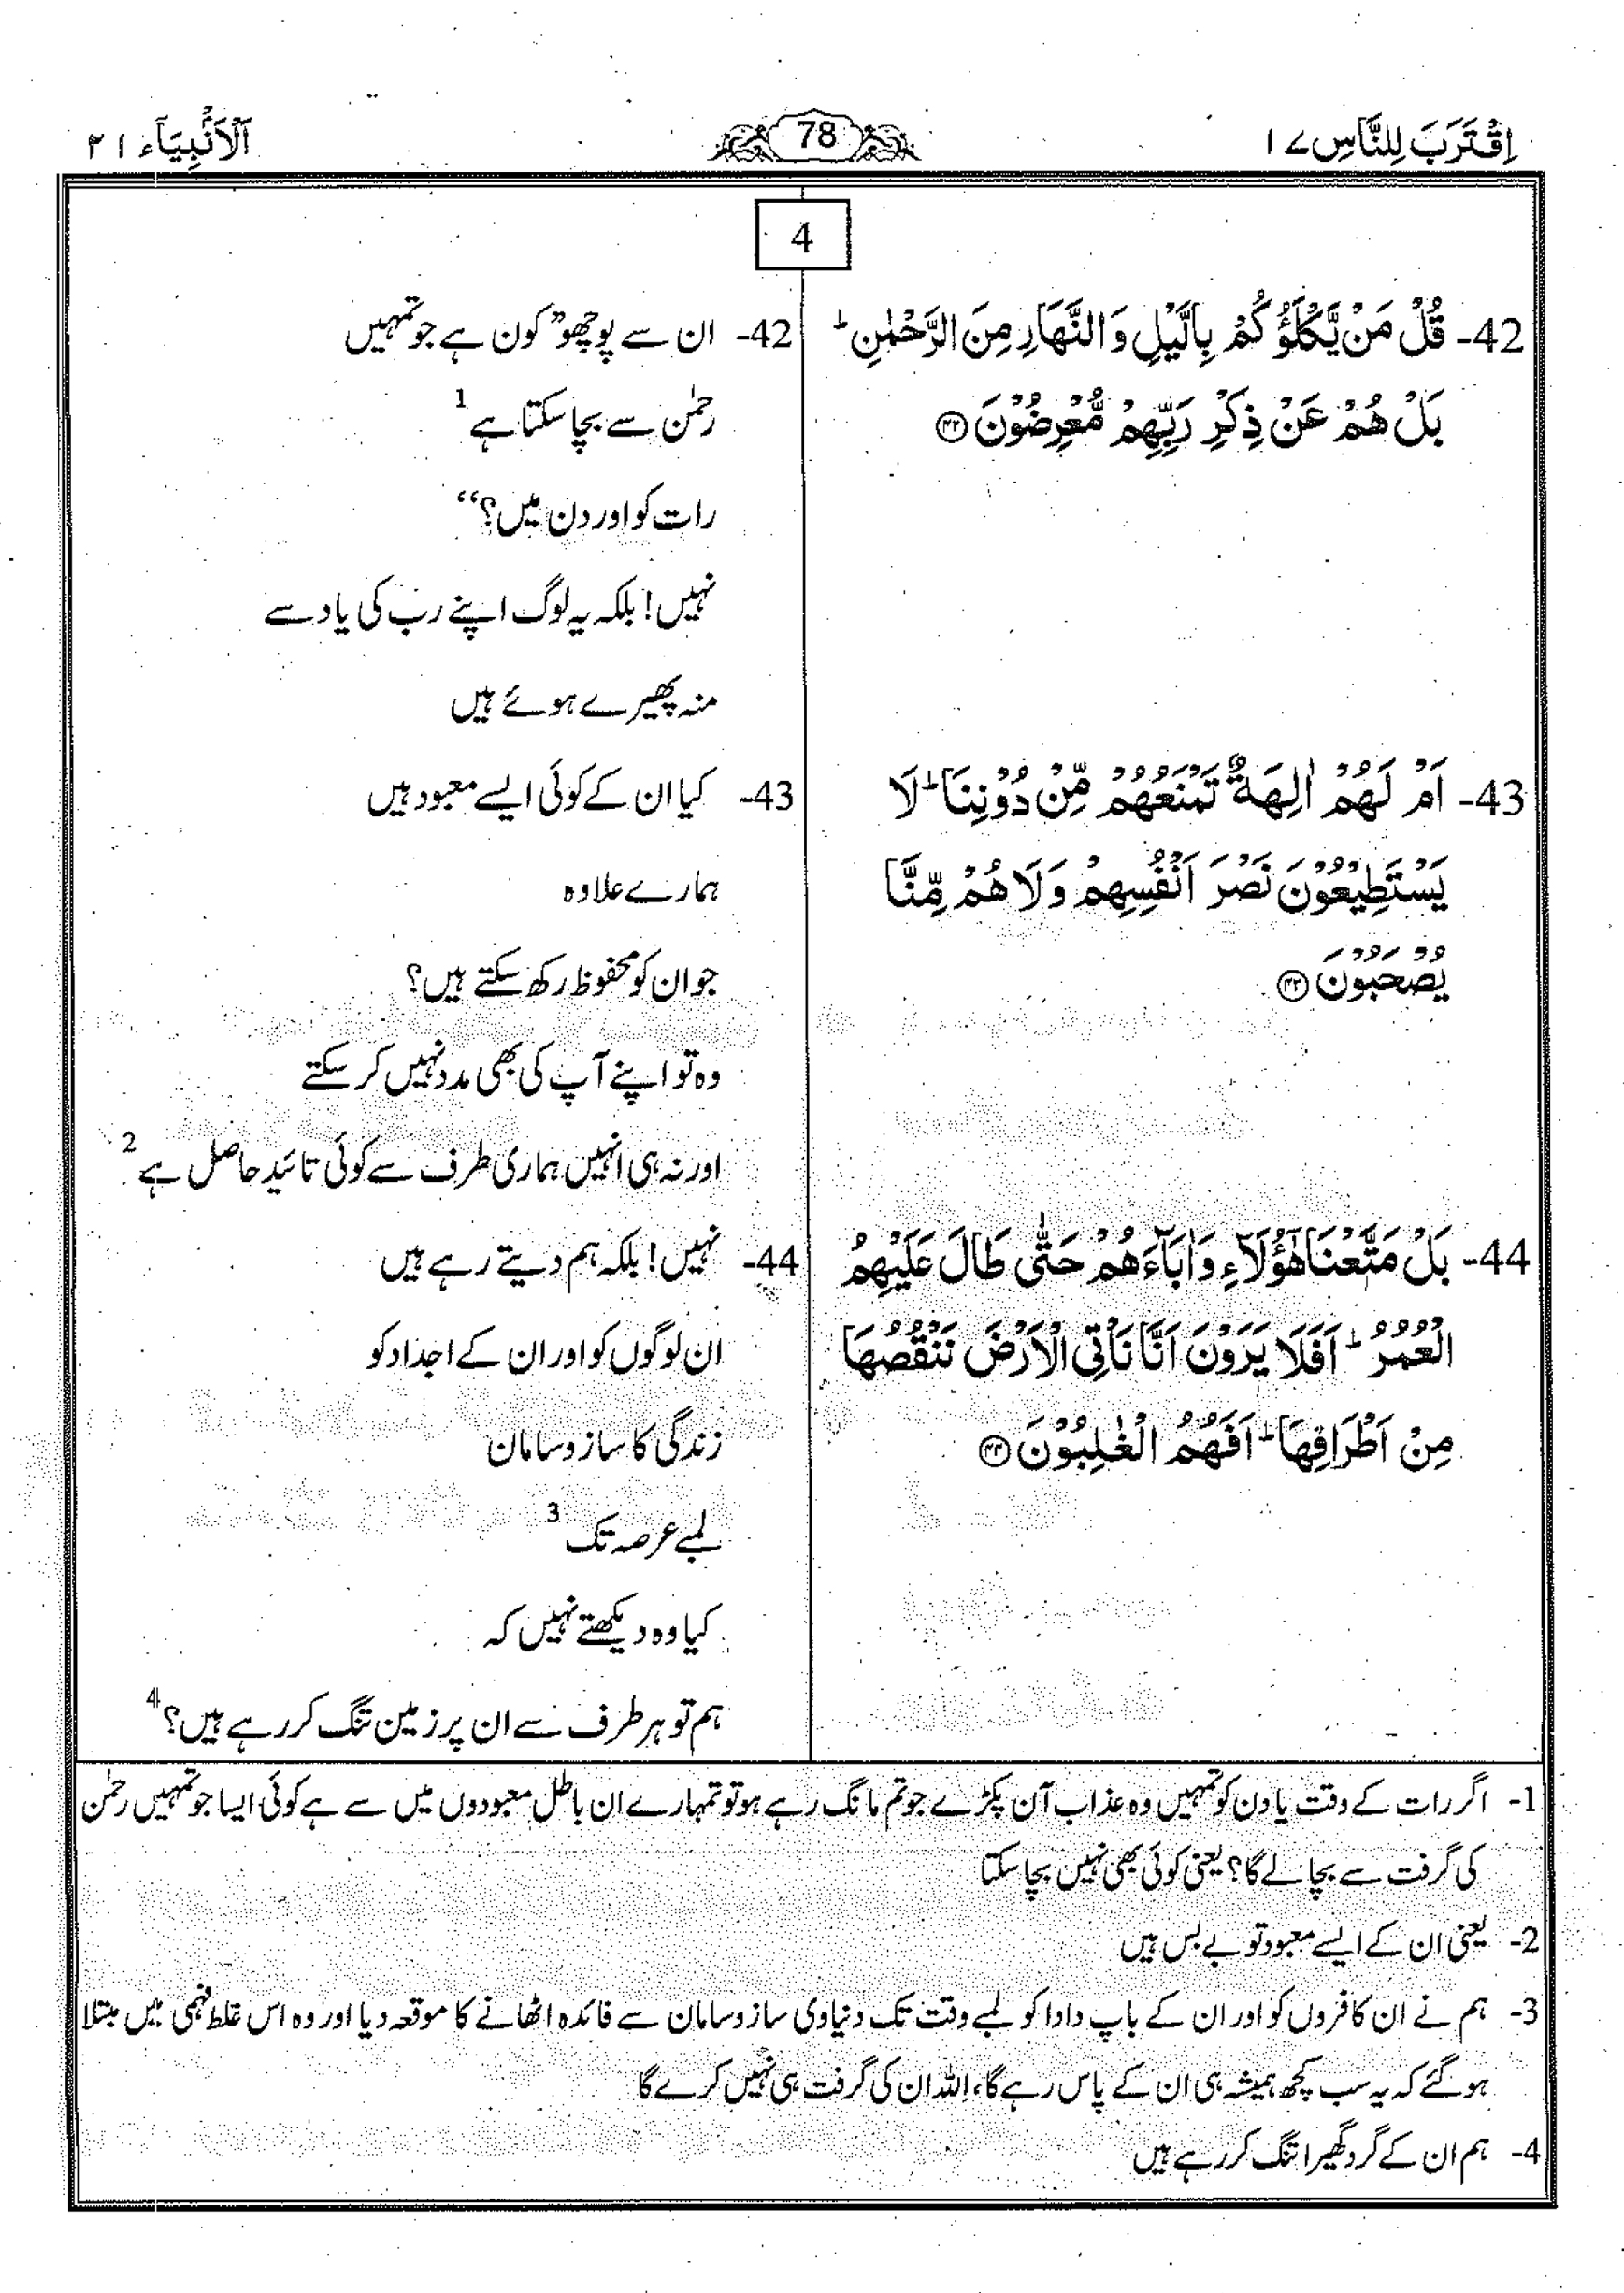 اِقْتَرَبَ لِلنَّاسِ ۱۷
78
اَلْاَنْۢبِيَآء ۲۱
4
42- قُلْ مَنْ يَّكْلَؤُكُمْ بِالَّيْلِ وَالنَّهَارِ مِنَ الرَّحْمٰنِ ؕ
بَلْ هُمْ عَنْ ذِكْرِ رَبِّهِمْ مُّعْرِضُوْنَ ﴿۴۲﴾
42- ان سے پوچھو ”کون ہے جو تمہیں
رحمٰن سے بچا سکتا ہے 1
رات کو اور دن میں؟“
نہیں! بلکہ یہ لوگ اپنے رب کی یاد سے
منہ پھیرے ہوئے ہیں
43- اَمْ لَهُمْ اٰلِهَةٌ تَمْنَعُهُمْ مِّنْ دُوْنِنَا ؕ لَا
يَسْتَطِيْعُوْنَ نَصْرَ اَنْفُسِهِمْ وَلَا هُمْ مِّنَّا
يُصْحَبُوْنَ ﴿۴۳﴾
43- کیا ان کے کوئی ایسے معبود ہیں
ہمارے علاوہ
جو ان کو محفوظ رکھ سکتے ہیں؟
وہ تو اپنے آپ کی بھی مدد نہیں کر سکتے
اور نہ ہی انہیں ہماری طرف سے کوئی تائید حاصل ہے 2
44- بَلْ مَتَّعْنَا هٰٓؤُلَآءِ وَاٰبَآءَهُمْ حَتّٰى طَالَ عَلَيْهِمُ
الْعُمُرُ ؕ اَفَلَا يَرَوْنَ اَنَّا نَاْتِى الْاَرْضَ نَنْقُصُهَا
مِنْ اَطْرَافِهَا ؕ اَفَهُمُ الْغٰلِبُوْنَ ﴿۴۴﴾
44- نہیں! بلکہ ہم دیتے رہے ہیں
ان لوگوں کو اور ان کے اجداد کو
زندگی کا ساز و سامان
لمبے عرصہ تک 3
کیا وہ دیکھتے نہیں کہ
ہم تو ہر طرف سے ان پر زمین تنگ کر رہے ہیں؟ 4
1- اگر رات کے وقت یا دن کو تمہیں وہ عذاب آن پکڑے جو تم مانگ رہے ہو تو تمہارے ان باطل معبودوں میں سے ہے کوئی ایسا جو تمہیں رحمٰن
کی گرفت سے بچا لے گا؟ یعنی کوئی بھی نہیں بچا سکتا
2- یعنی ان کے ایسے معبود تو بے بس ہیں
3- ہم نے ان کافروں کو اور ان کے باپ دادا کو لمبے وقت تک دنیاوی ساز و سامان سے فائدہ اٹھانے کا موقعہ دیا اور وہ اس غلط فہمی میں مبتلا
ہو گئے کہ یہ سب کچھ ہمیشہ ہی ان کے پاس رہے گا، اللہ ان کی گرفت ہی نہیں کرے گا
4- ہم ان کے گرد گھیرا تنگ کر رہے ہیں